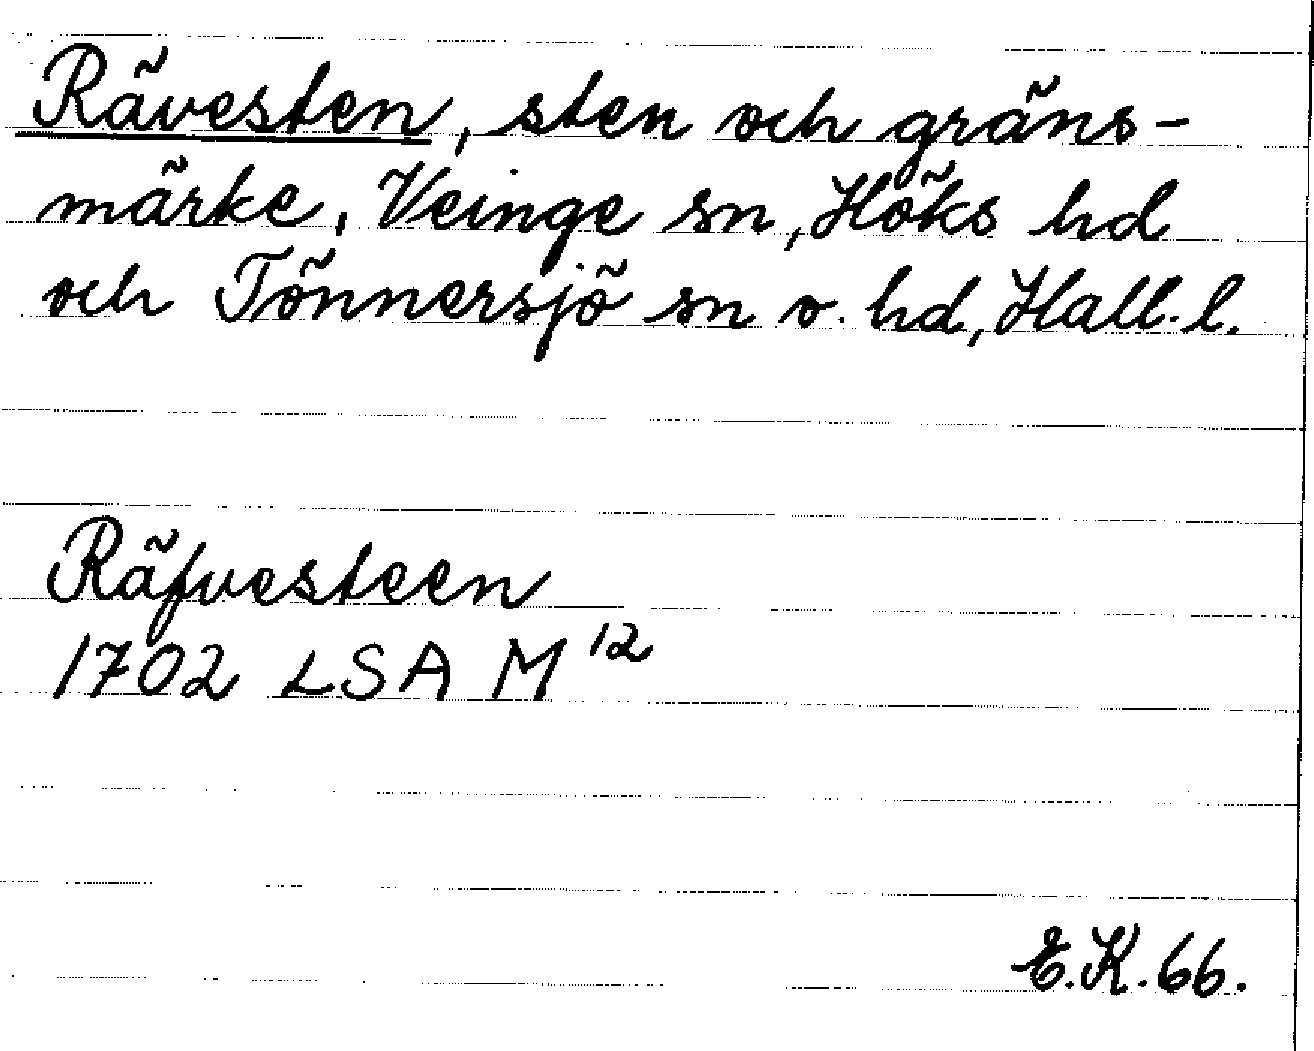 Rävesten, sten och gräns-
märke, Veinge sn, Höks hd
och Tönnersjö sn o. hd, Hall. l.
Räfvesteen
1702 LSA M 12
E.K. 66.